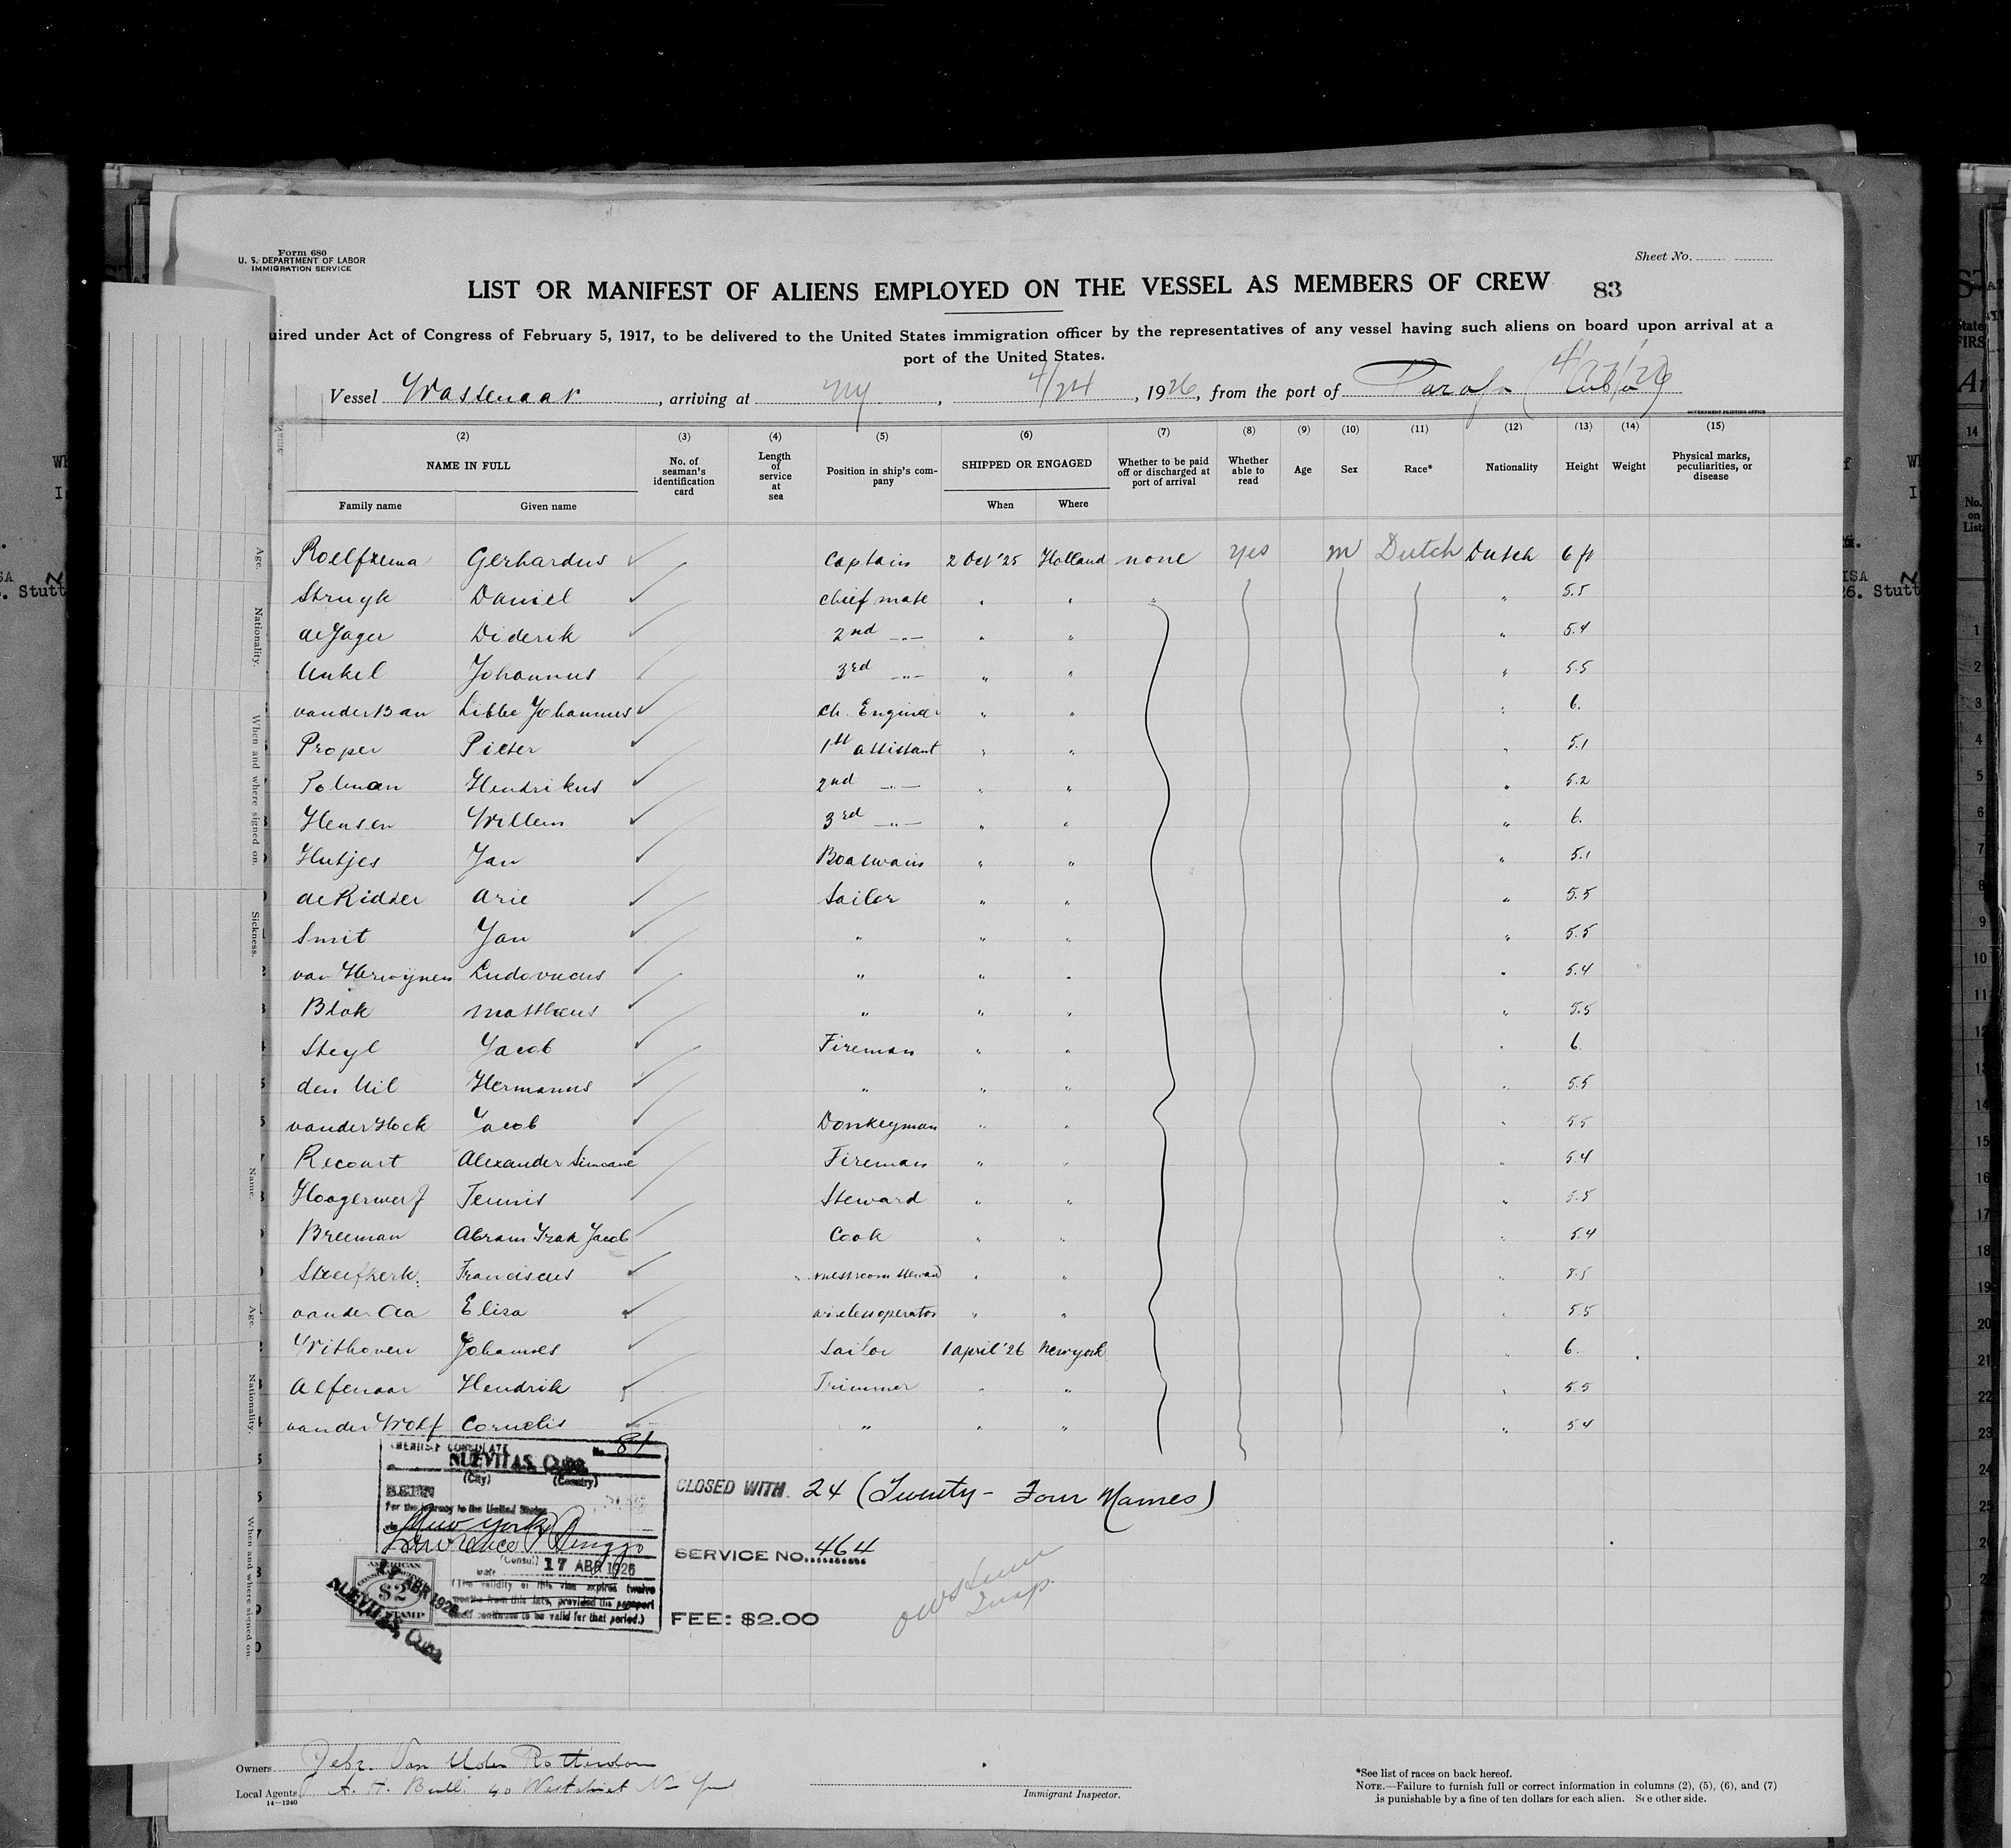 Form 680
U. S. DEPARTMENT OF LABOR
IMMIGRATION SERVICE
Sheet No.
LIST OR MANIFEST OF ALIENS EMPLOYED ON THE VESSEL AS MEMBERS OF CREW
83
uired under Act of Congress of February 5, 1917, to be delivered to the United States immigration officer by the representatives of any vessel having such aliens on board upon arrival at a
port of the United States.
4/27/26
Vessel Wassenaar, arriving at NY, 4/24, 1926, from the port of (Cuba)
GOVERNMENT PRINTING OFFICE
(2) (3) (4) (5) (6) (7) (8) (9) (10) (11) (12) (13) (14) (15)
NAME IN FULL No. of seaman's identification card Length of service at sea Position in ship's company SHIPPED OR ENGAGED Whether to be paid off or discharged at port of arrival Whether able to read Age Sex Race* Nationality Height Weight Physical marks, peculiarities, or disease
Family name Given name When Where
Roelfzema Gerhardus Captain 2 Oct '25 Holland none yes m Dutch Dutch 6 ft
Struyk Daniel chief mate " " " " 5.5
de Jager Diderik 2nd -"- " " " 5.4
Unkel Johannus 3rd -"- " " " 5.5
vander Ban Libbe Johannus Ch. Engineer " " " 6.
Proper Pieter 1st assistant " " " 5.1
Polman Hendrikus 2nd -"- " " " 5.2
Hensen Willem 3rd -"- " " " 6.
Hutjes Jan Boatswain " " " 5.1
de Ridder Arie Sailor " " " 5.5
Smit Jan " " " " 5.5
van Herwijnen Ludovucus " " " " 5.4
Blok Mattheus " " " " 5.5
Steyl Jacob Fireman " " " 6.
den Uil Hermanus " " " " 5.5
vander Hoek Jacob Donkeyman " " " 5.5
Recourt Alexander Simoane Fireman " " " 5.4
Hoogerwerf Teunis Steward " " " 5.5
Breeman Abram Izak Jacob Cook " " " 5.4
Streefkerk Franciscus messroom steward " " " 5.5
vander Aa Eliza wirelessoperator " " " 5.5
Withoven Johannes Sailor 1 april '26 New york " 6.
Alfenaar Hendrik Trimmer " " " 5.5
vander Wolf Cornelis " " " " 5.4
AMERICAN CONSULATE No 81
NUEVITAS, Cuba
(City) (Country)
SEEN
For the journey to the United States
New York
(Consul)
Date 17 ABR 1926
(The validity of this visa expires twelve
months from this date, provided the passport
itself continues to be valid for that period.)
AMERICAN
$2
STAMP
17 ABR 1926
NUEVITAS, Cuba
CLOSED WITH 24 (Twenty-Four Names)
SERVICE NO. 464
FEE: $2.00
Insp.
Owners Gebr. Van Uden Rotterdam
Local Agents A. H. Bull 40 West street New York
14—1240
Immigrant Inspector.
*See list of races on back hereof.
NOTE.—Failure to furnish full or correct information in columns (2), (5), (6), and (7)
is punishable by a fine of ten dollars for each alien. See other side.
Age.
Nationality.
When and where signed on.
Sickness.
Name.
Age.
Nationality.
When and where signed on.